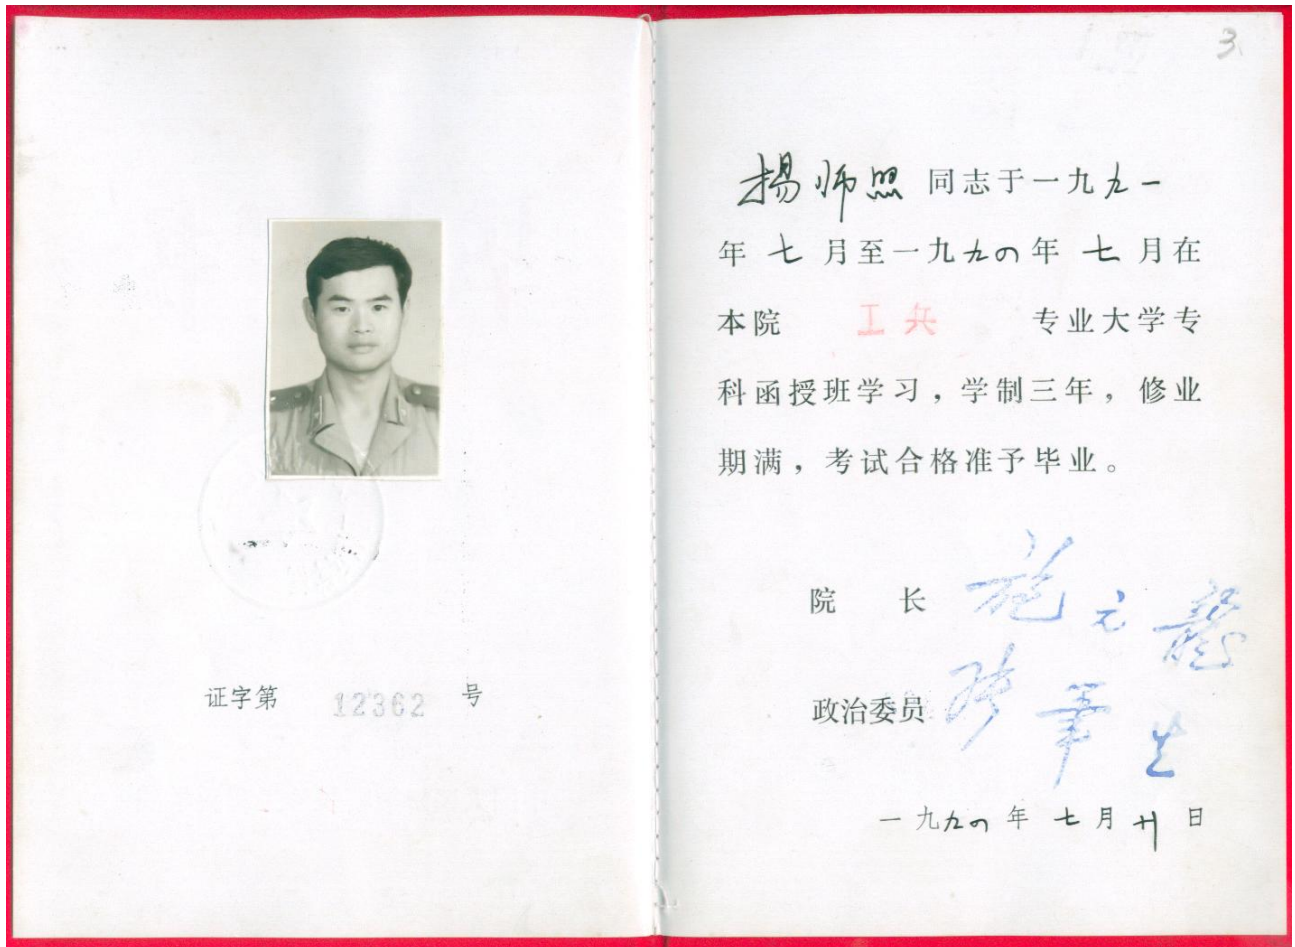 证字第 12362 号
3
楊师照 同志于一九九一
年七月至一九九四年七月在
本院 工兵 专业大学专
科函授班学习，学制三年，修业
期满，考试合格准予毕业。
院 长 施元龍
政治委员
一九九四年七月廿日